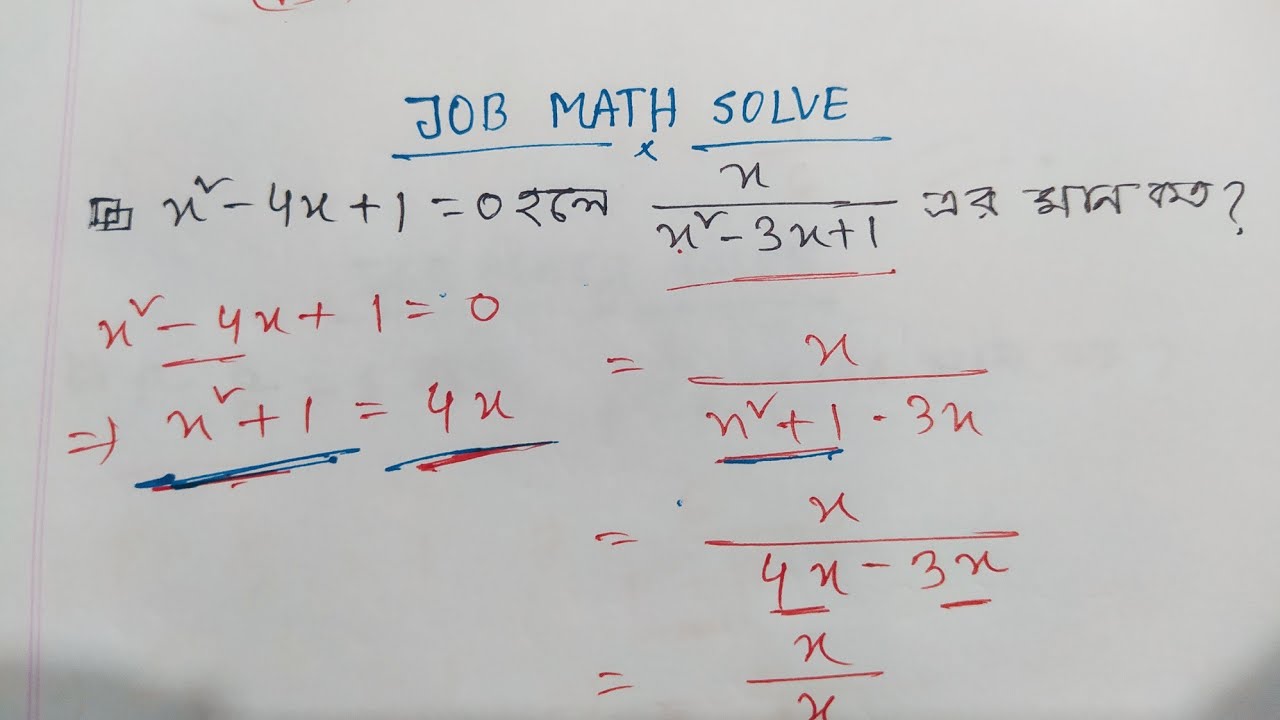 JOB MATH SOLVE
x² - 4x + 1 = 0 হলে x/(x² - 3x + 1) এর মান কত?
x² - 4x + 1 = 0
⇒ x² + 1 = 4x
= x/(x² + 1 - 3x)
= x/(4x - 3x)
= x/x